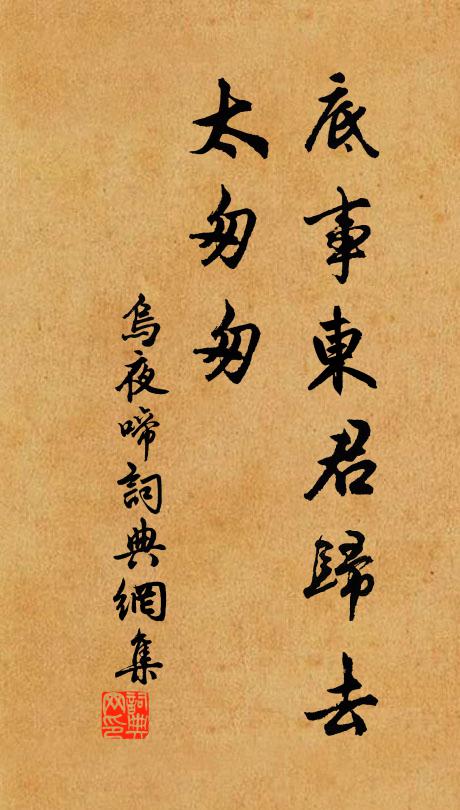 底事東君歸去
太匆匆
烏夜啼詞典網集
詞典网印